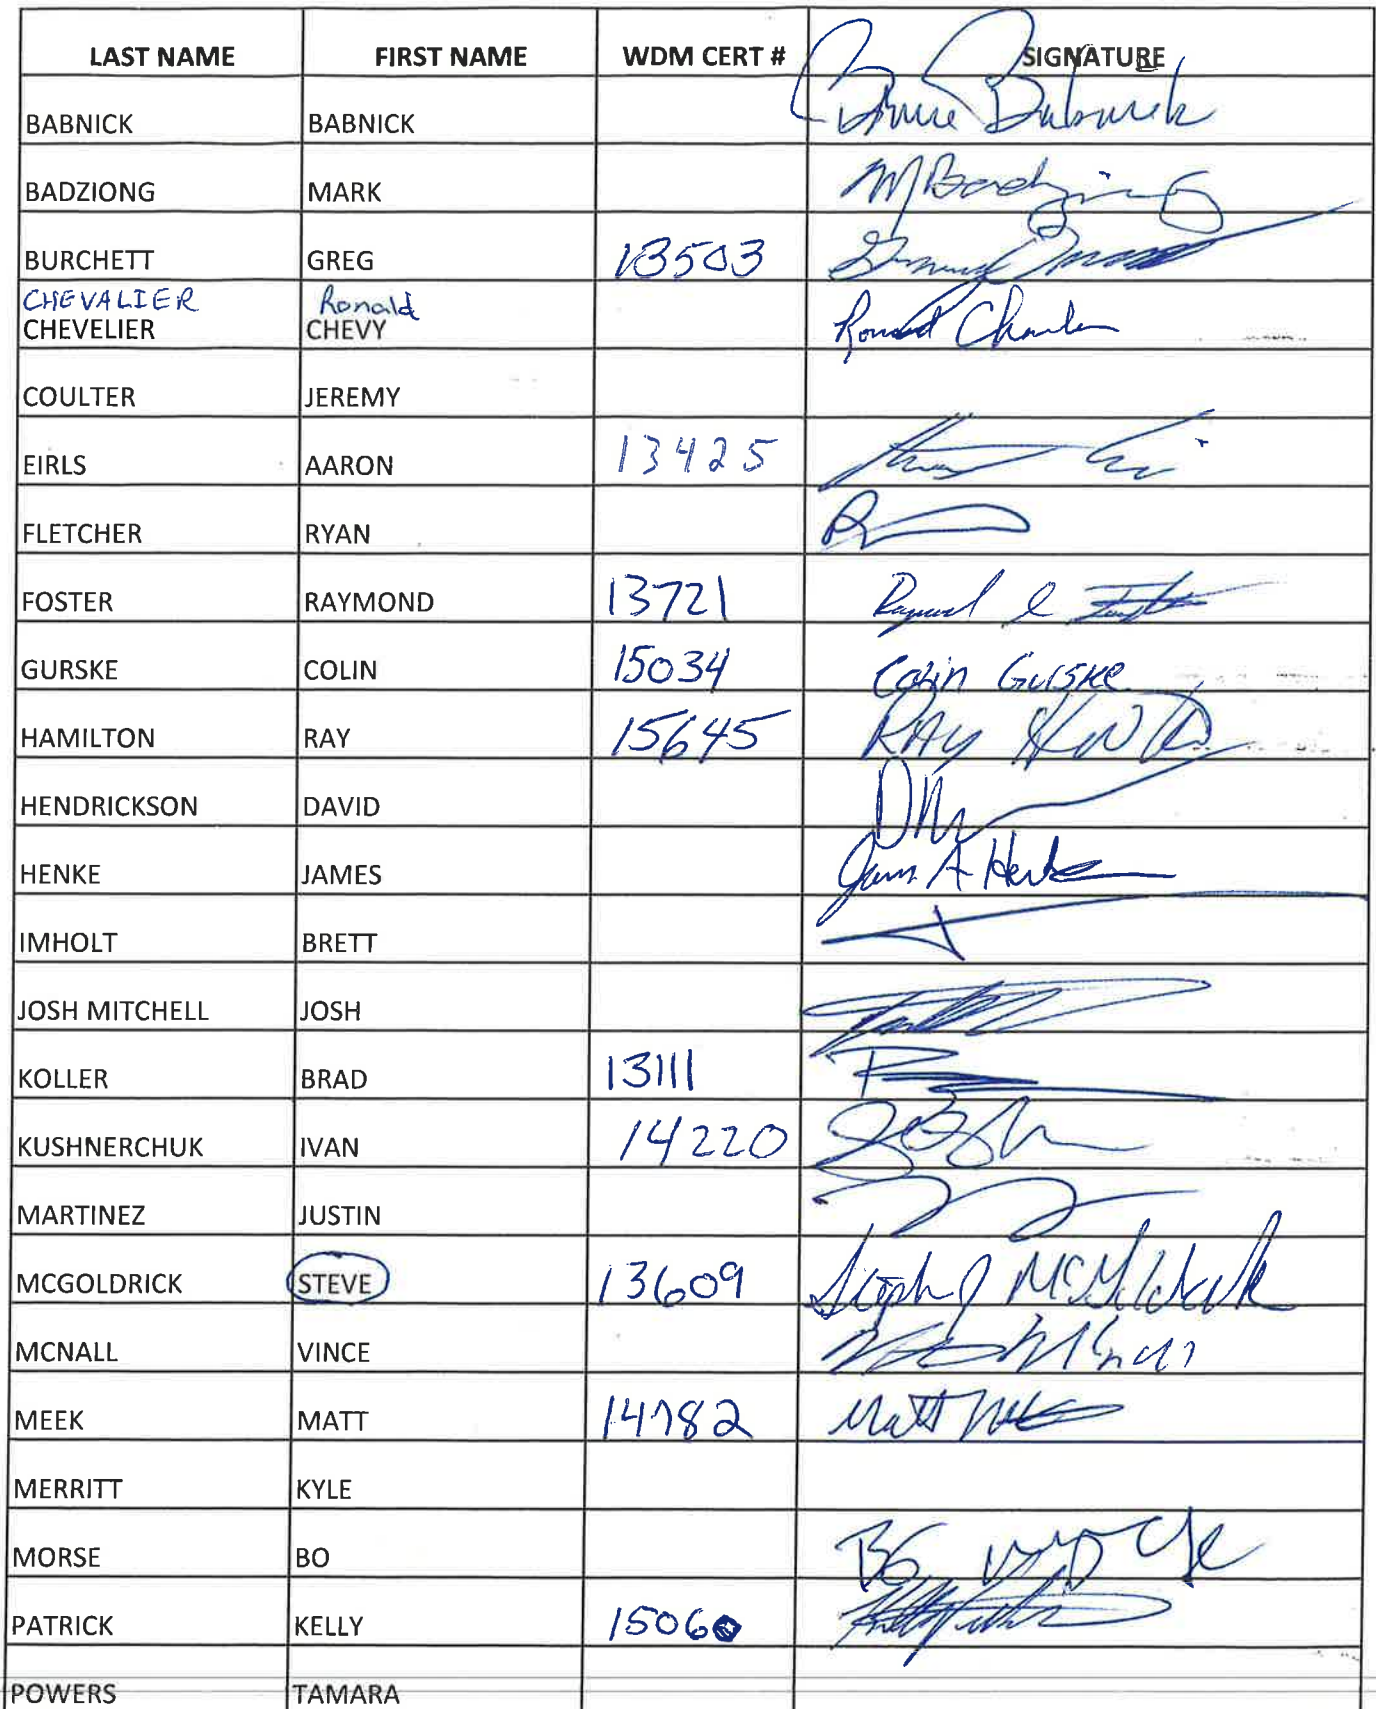 LAST NAME FIRST NAME WDM CERT # SIGNATURE
BABNICK BABNICK Babnick
BADZIONG MARK M Badziong
BURCHETT GREG 13503
CHEVALIER Ronald
CHEVELIER CHEVY Ronald
COULTER JEREMY
EIRLS AARON 13425
FLETCHER RYAN
FOSTER RAYMOND 13721
GURSKE COLIN 15034 Colin Gurske
HAMILTON RAY 15645 RAY
HENDRICKSON DAVID
HENKE JAMES James A Henke
IMHOLT BRETT
JOSH MITCHELL JOSH
KOLLER BRAD 13111
KUSHNERCHUK IVAN 14220
MARTINEZ JUSTIN
MCGOLDRICK STEVE 13609 McGoldrick
MCNALL VINCE
MEEK MATT 14782 Matt
MERRITT KYLE
MORSE BO BO
PATRICK KELLY 1506
POWERS TAMARA